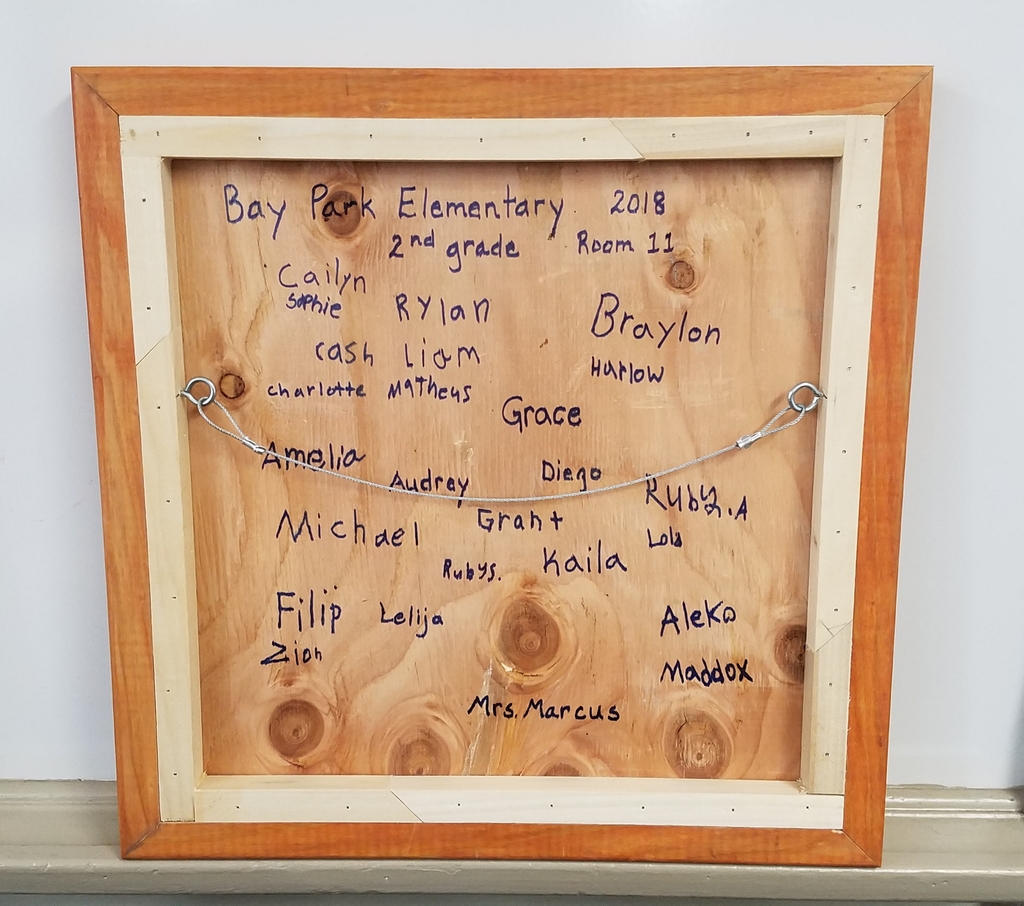 Bay Park Elementary 2018
2nd grade Room 11
Cailyn
Sophie Rylan Braylon
Cash Liam Harlow
Charlotte Matheus
Grace
Amelia Audrey Diego Ruby.A
Michael Grant Lola
Rubys. Kaila
Filip Lelija Aleko
Zion Maddox
Mrs. Marcus